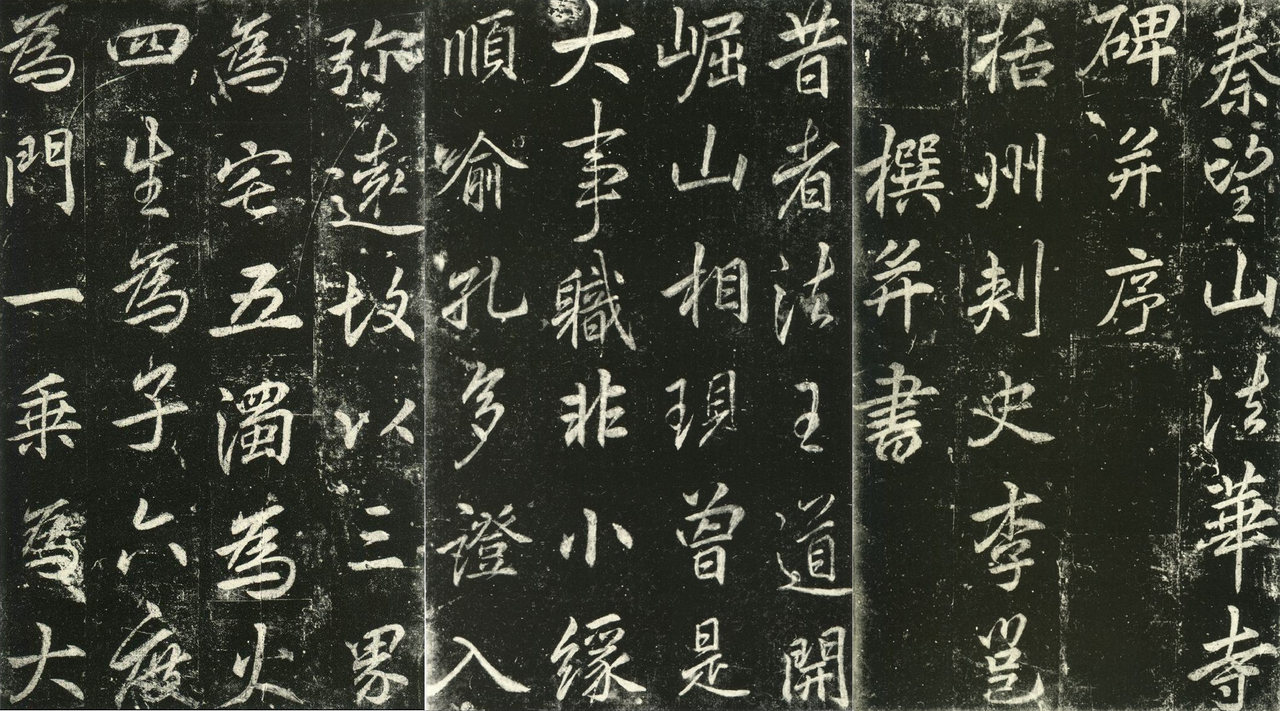 秦望山法華寺
碑并序
括州刺史李邕
撰并書
昔者法王道開
崛山相現曾是
大事職非小緣
順喻孔多證入
弥遠故以三界
為宅五濁為火
四生為子六度
為門一乗為大